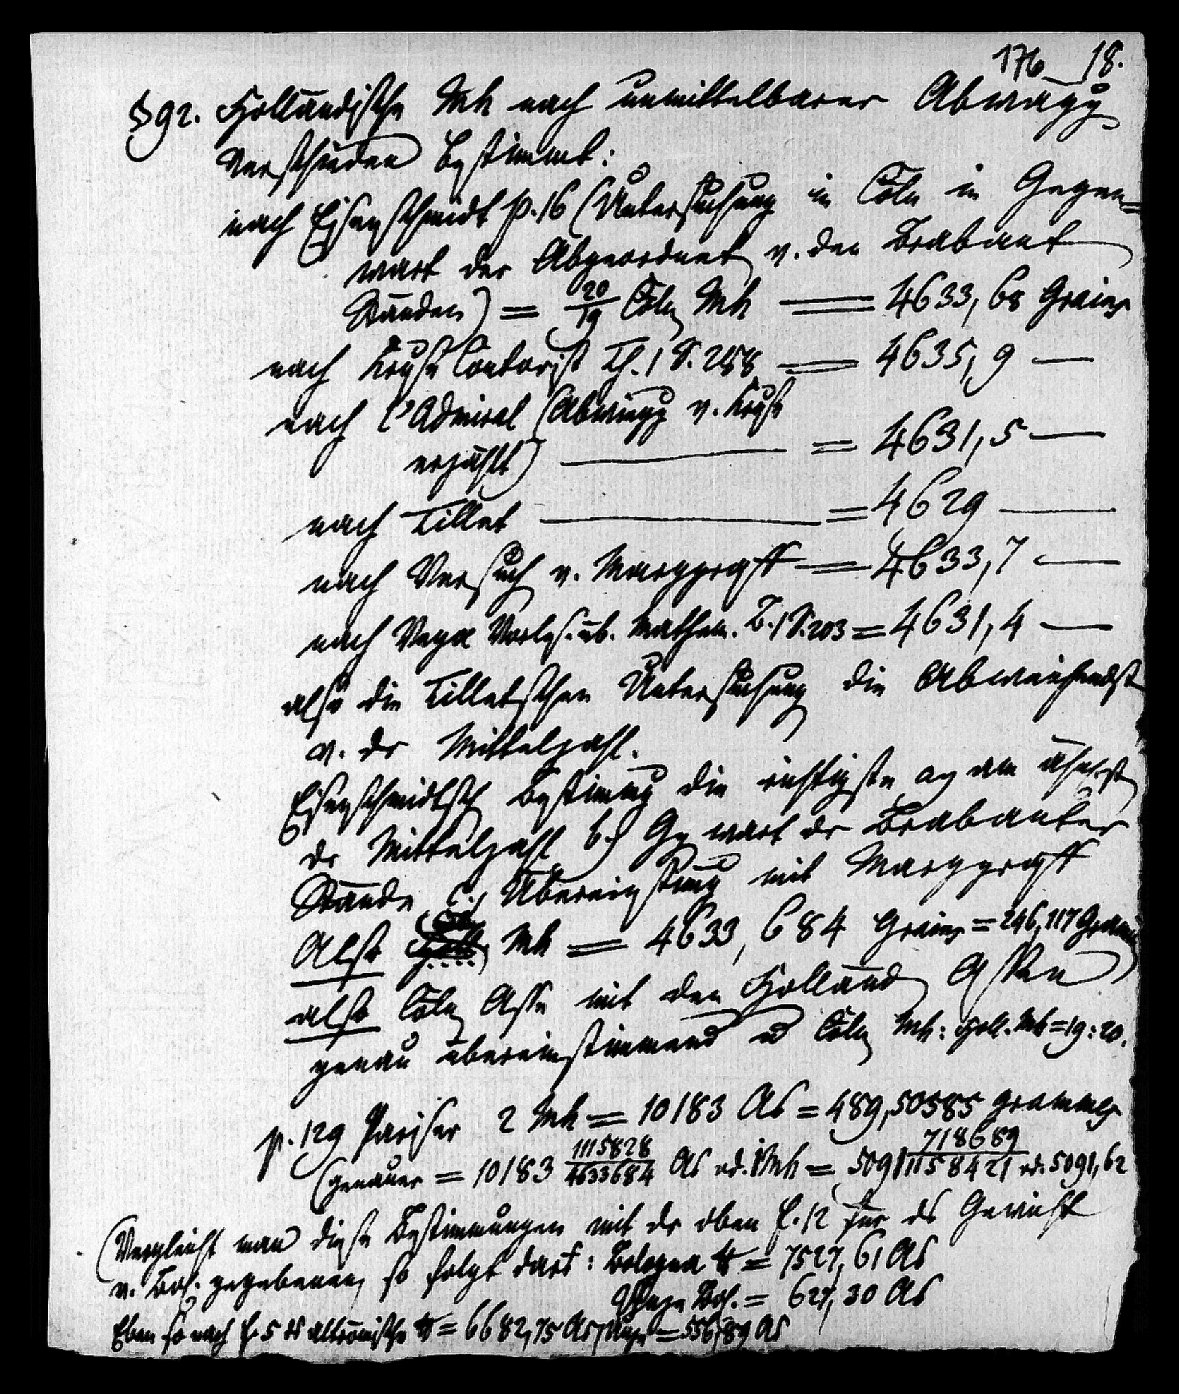 176 18.
§ 92. Holländische Mk nach unmittelbarer Abwägg
verschieden bestimmt:
nach Eisenschmidt p. 16 (Untersuchung in Cöln in Gegen=
wart der Abgeordnet v. den Brabant
Ständen) = 20/19 Cöln Mk = 4633,68 Grains
nach Kruse Contorist Th. 1 S. 258 = 4635,9 —
nach l'Admiral (Abwägg v. Kruse
erzählt) — = 4631,5 —
nach Tillet — = 4629 —
nach Versuch v. Marggraff = 4633,7 —
nach Vega Vorles. üb. Mathem. B. 1 S. 203 = 4631,4 —
also die Tilletschen Untersuchung die Abweichendst
v. dr Mittelzahl.
Eisenschmidtsch Bestimmg die richtigste a) am nächst
dr Mittelzahl b) Ggwart dr Brabanter
Stände c) Übereinstimg mit Marggraff
Also Mk = 4633,684 Grains = 246,117 Gramm
also Cöln Asse mit den Holländ Assen
genau übereinstimmend u Cöln Mk: Holl. Mk = 19:20.
p. 129 Pariser 2 Mk = 10183 As = 489,50585 grammes
(genauer = 10183 1115828/4633684 As od. 1 Mk = 5091 718689/1158421 od. 5091,62
(Vergleicht man diese Bestimmungen mit dr oben S. 12 für ds Gewicht
v. Bol. gegebenen, so folgt dort: Bologna ℔ = 7527,61 As
Unze Bol. = 627,30 As
Eben so nach S. 5 ds altrömische ℔ = 6682,75 As, Unze = 556,89 As